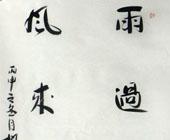 雨過
風来
丙申之冬月